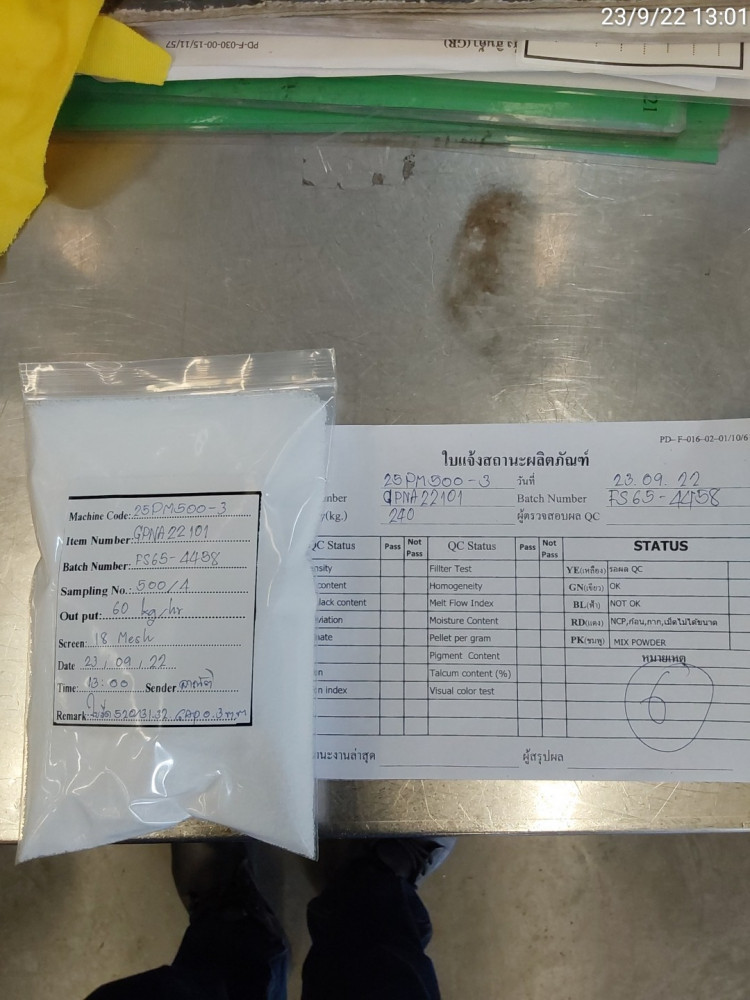 23/9/22 13:01
PD-F-030-00-15/11/57
(GR)
21
Machine Code: 25PM500-3
Item Number: GPNA22101
Batch Number: FS65-4458
Sampling No.: 500/1
Out put: 60 kg/hr
Screen: 18 Mesh
Date 23 / 09 / 22
Time: 13:00 Sender
Remark: GAP 0.3 ม.ม
PD-F-016-02-01/10/6
ใบแจ้งสถานะผลิตภัณฑ์
25PM500-3 วันที่ 23.09.22
mber GPNA22101 Batch Number FS65-4458
(kg.) 240 ผู้ตรวจสอบผล QC
QC Status Pass Not Pass QC Status Pass Not Pass STATUS
nsity Fillter Test YE(เหลือง) รอผล QC
content Homogeneity GN(เขียว) OK
lack content Melt Flow Index BL(ฟ้า) NOT OK
viation Moisture Content RD(แดง) NCP,ก้อน,กาก,เม็ดไม่ได้ขนาด
ate Pellet per gram PK(ชมพู) MIX POWDER
Pigment Content หมายเหตุ
n Talcum content (%)
n index Visual color test
6
านะงานล่าสุด ผู้สรุปผล